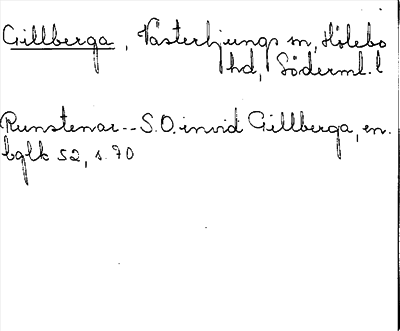 Gillberga, Västerljungs sn, Hölebo
hd, Söderml. l
Runstenar -- S.O. invid Gillberga, en.
bglb 52, s. 70